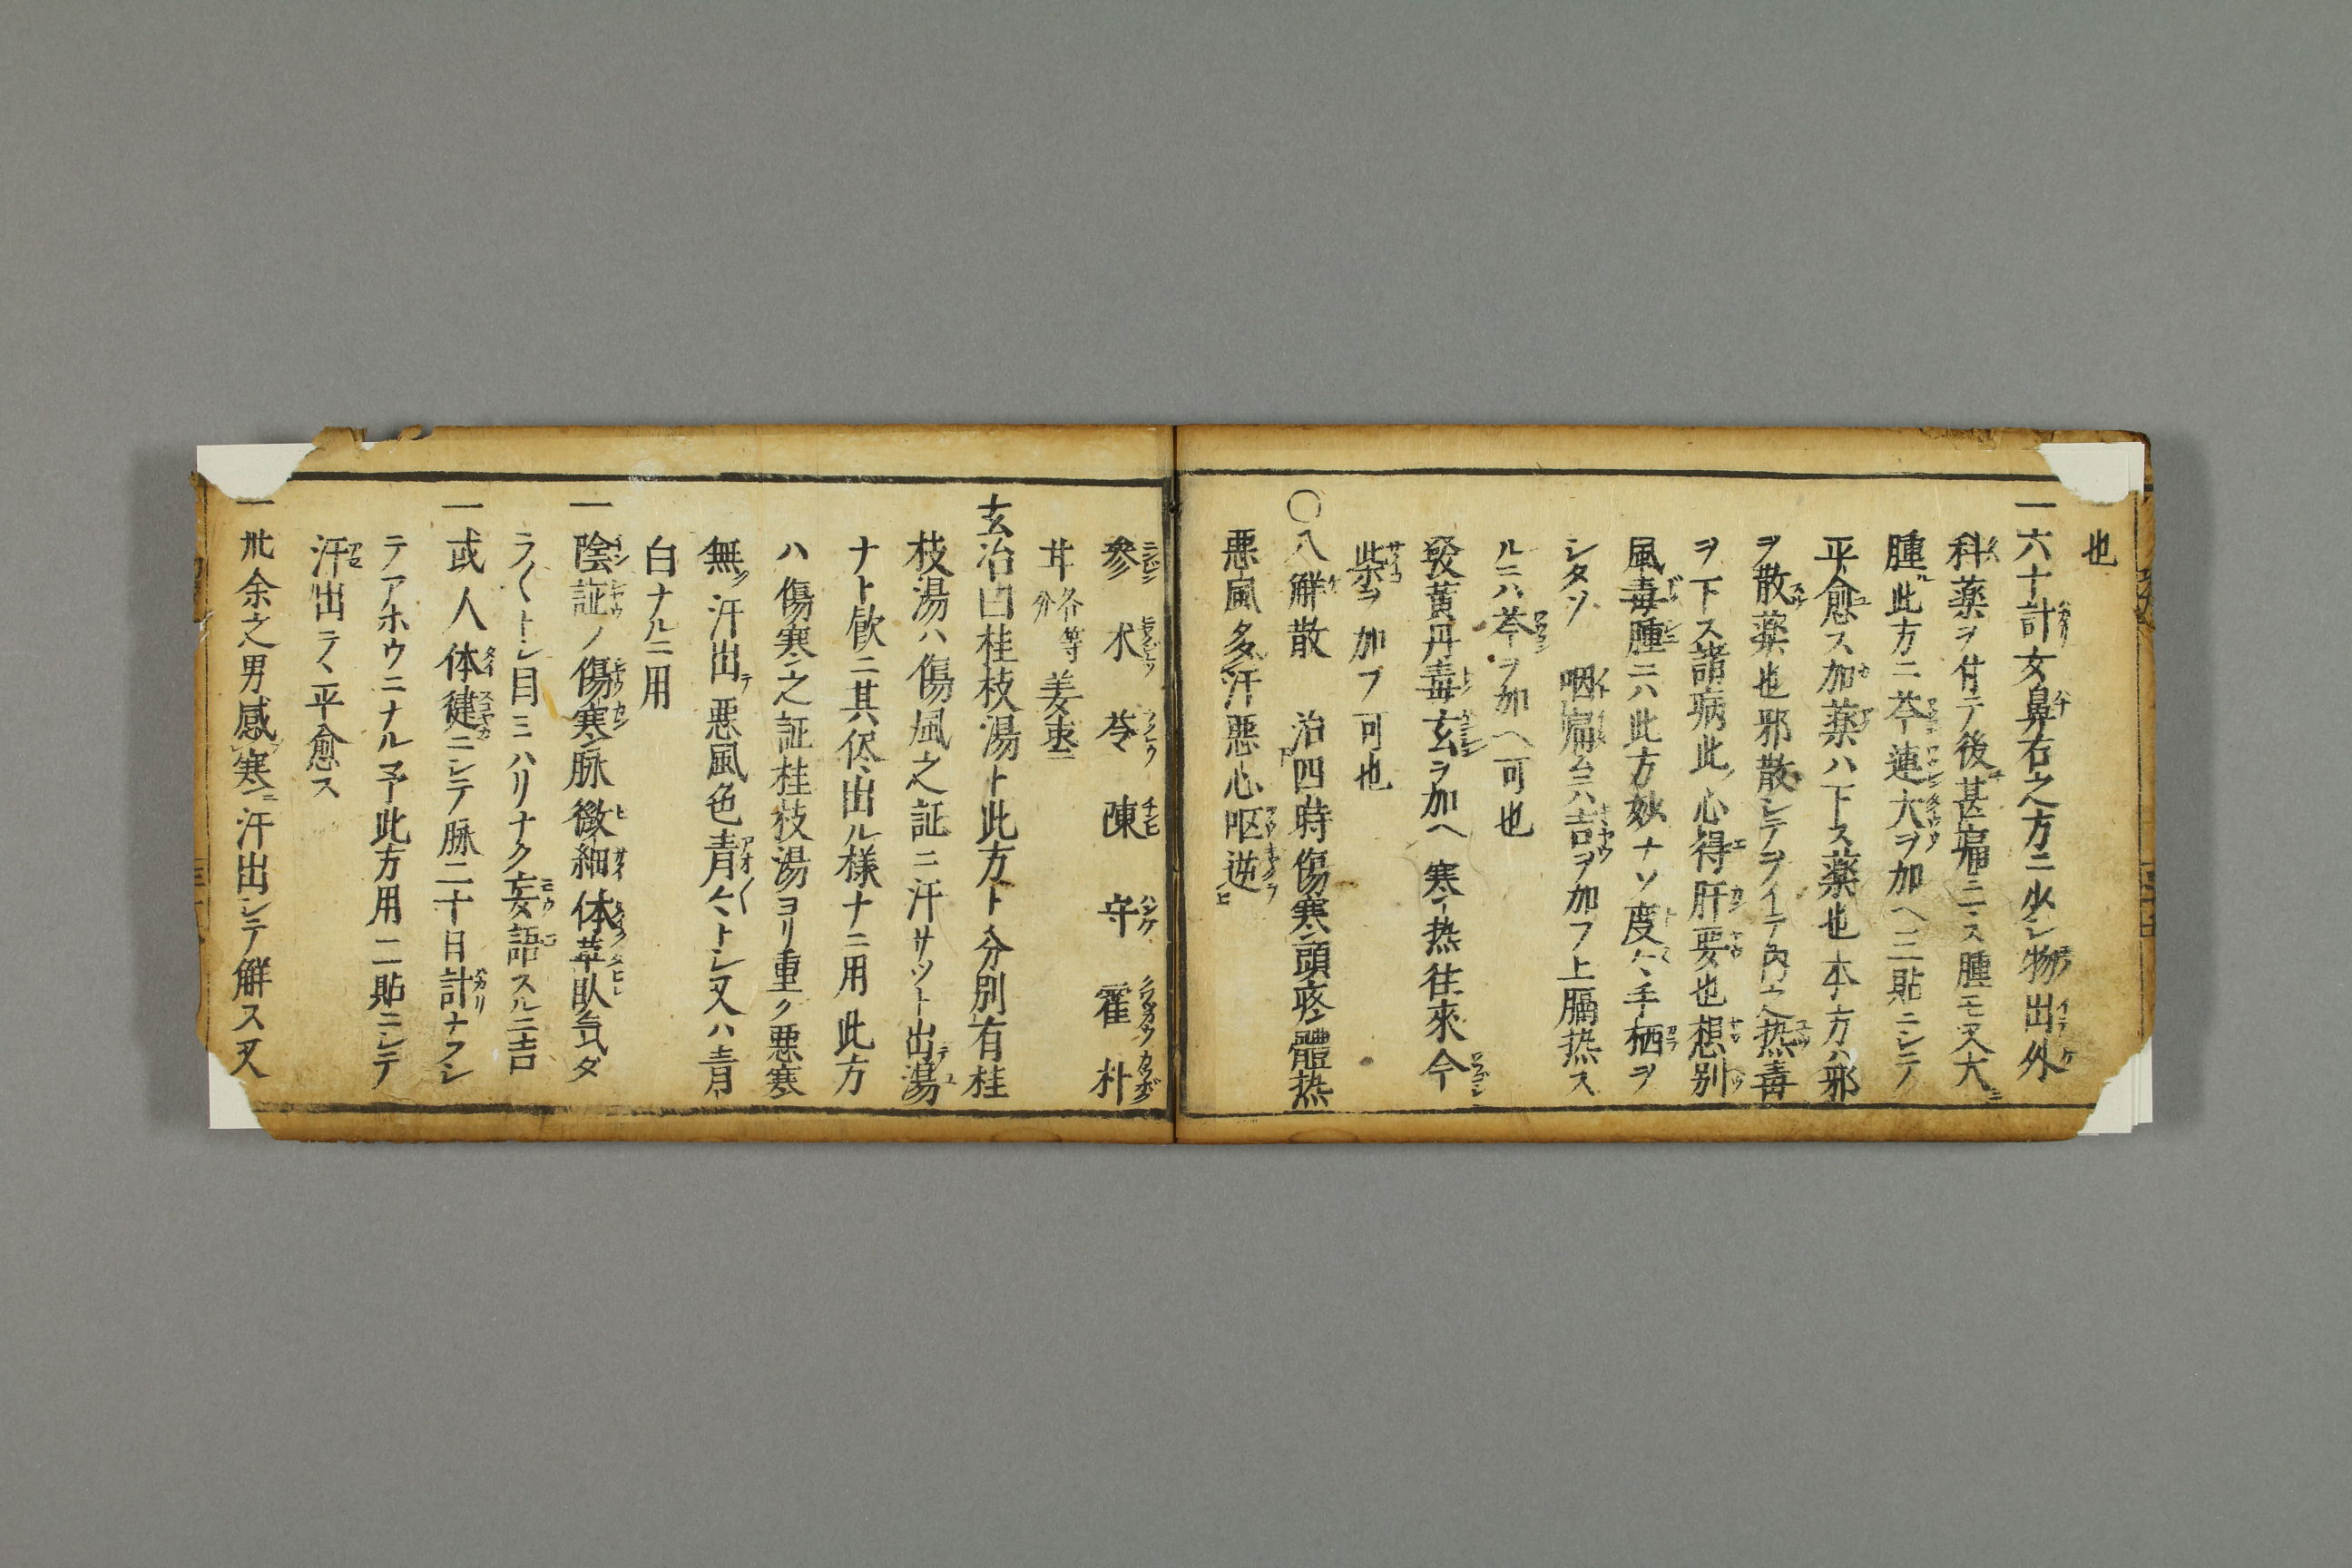 也
一六十計女鼻右之方ニ少シ物出外
科薬ヲ付テ後甚痛ニス腫モ又大
腫此方ニ芩連大ヲ加ヘ三貼ニシテ
平愈ス加薬ハ下ス薬也本方ハ邪
ヲ散薬也邪散シテヲイテ内之热毒
ヲ下ス諸病此心得肝要也想別
風毒腫ニハ此方妙ナソ度〻手栖ヲ
シタソ 咽痛ニハ吉ヲ加フ上膈热ス
ルニハ芩ヲ加ヘ可也
發黄丹毒玄ヲ加ヘ寒热往來今
柴ヲ加フ可也
〇八解散 治四時傷寒頭疼體热
悪風多汗悪心呕逆
参 朮 苓 陳 守 霍 朴
甘各等分 姜枣
玄冶曰桂枝湯ト此方ト分別有桂
枝湯ハ傷風之証ニ汗サツト出湯
ナト飲ニ其侭出ル様ナニ用此方
ハ傷寒之証桂枝湯ヨリ重ク悪寒
無汗出悪風色青〻トシ又ハ青
白ナルニ用
一陰証ノ傷寒脉微細体草臥気ダ
ラ〱トシ目ミハリナク妄語スルニ吉
一或人体健ニシテ脉二十日計ナフシ
テアホウニナル予此方用二貼ニシテ
汗出テ平愈ス
一卅余之男感寒汗出シテ解ス又